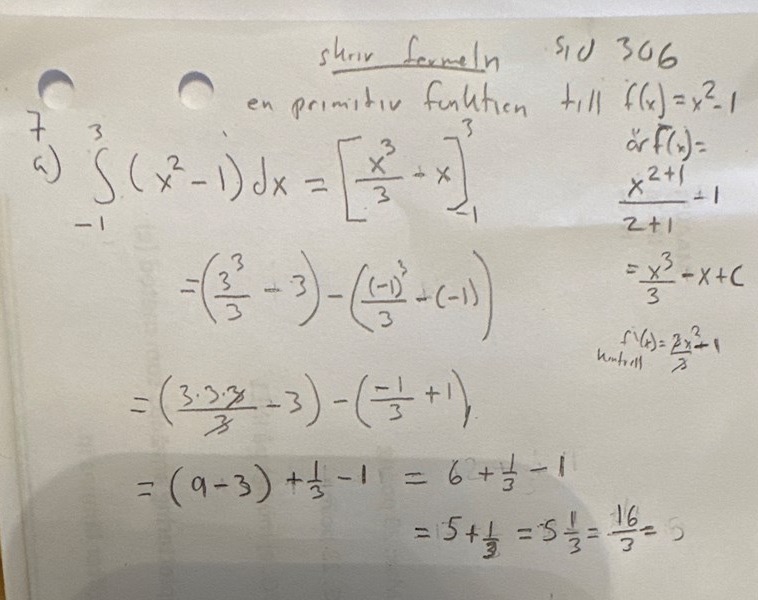 skriv formeln sid 306
en primitiv funktion till f(x) = x² - 1
är F(x) =
x²⁺¹/(2+1) - 1
= x³/3 - x + C
kontroll f'(x) = 3x²/3 - 1
7
a) ∫₋₁³ (x² - 1) dx = [x³/3 - x]₋₁³
= (3³/3 - 3) - ((-1)³/3 - (-1))
= (3·3·3/3 - 3) - (-1/3 + 1)
= (9 - 3) + 1/3 - 1 = 6 + 1/3 - 1
= 5 + 1/3 = 5 1/3 = 16/3 =